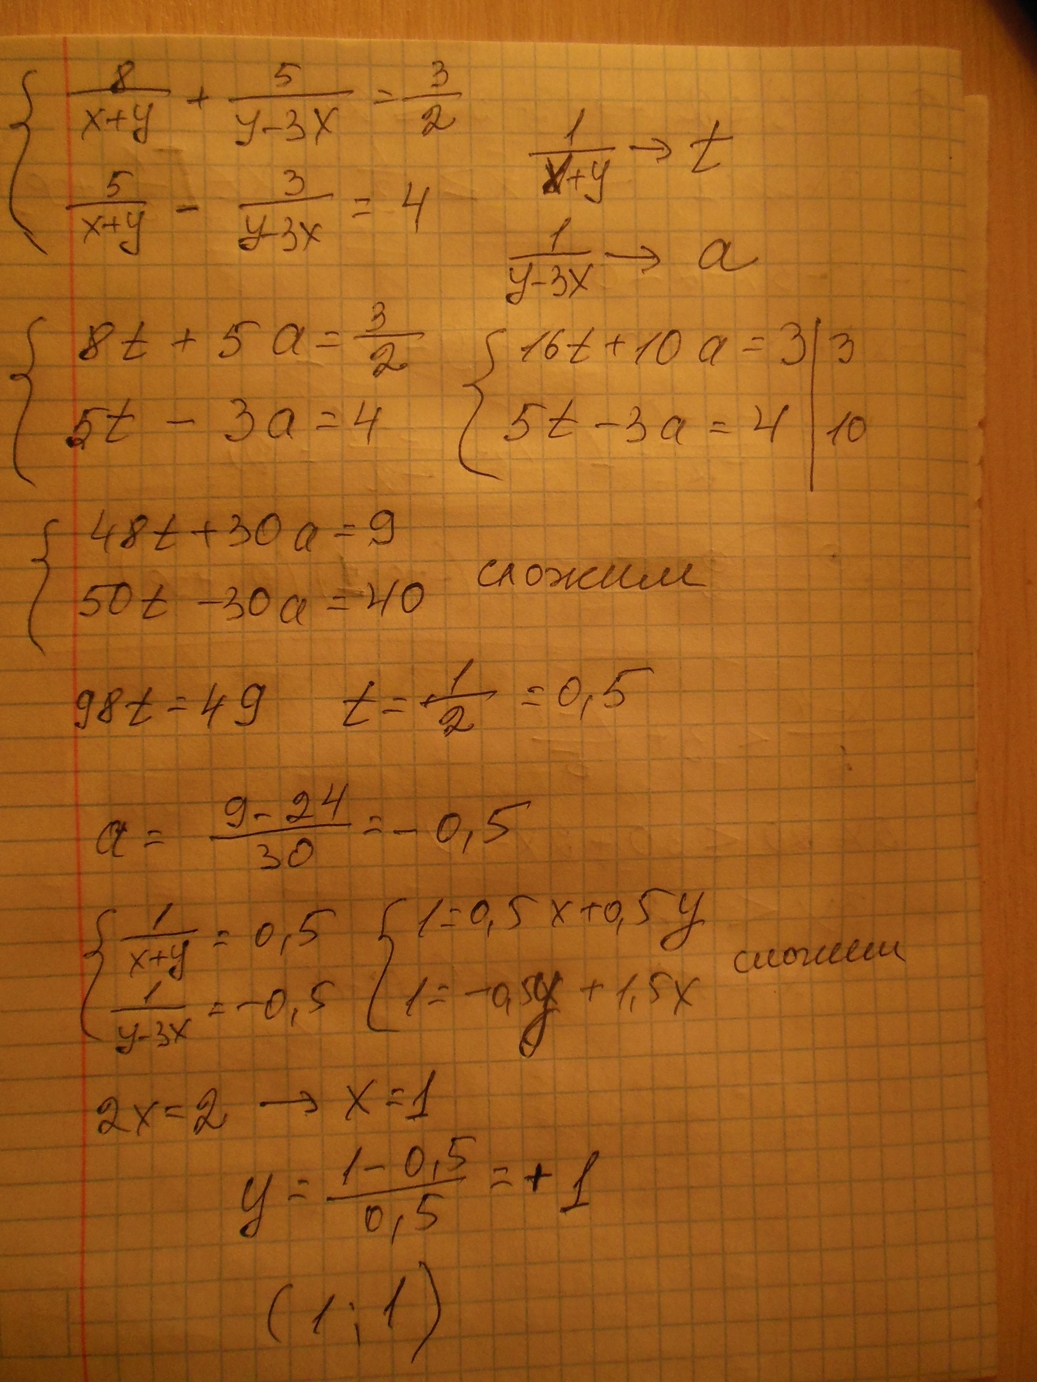 8/(x+y) + 5/(y-3x) = 3/2
5/(x+y) - 3/(y-3x) = 4
1/(x+y) → t
1/(y-3x) → a
8t + 5a = 3/2
5t - 3a = 4
16t + 10a = 3 | 3
5t - 3a = 4 | 10
48t + 30a = 9
50t - 30a = 40
сложим
98t = 49 t = 1/2 = 0,5
a = (9-24)/30 = -0,5
1/(x+y) = 0,5
1/(y-3x) = -0,5
1 = 0,5x + 0,5y
1 = -0,5y + 1,5x
сложим
2x = 2 → x = 1
y = (1-0,5)/0,5 = +1
(1; 1)